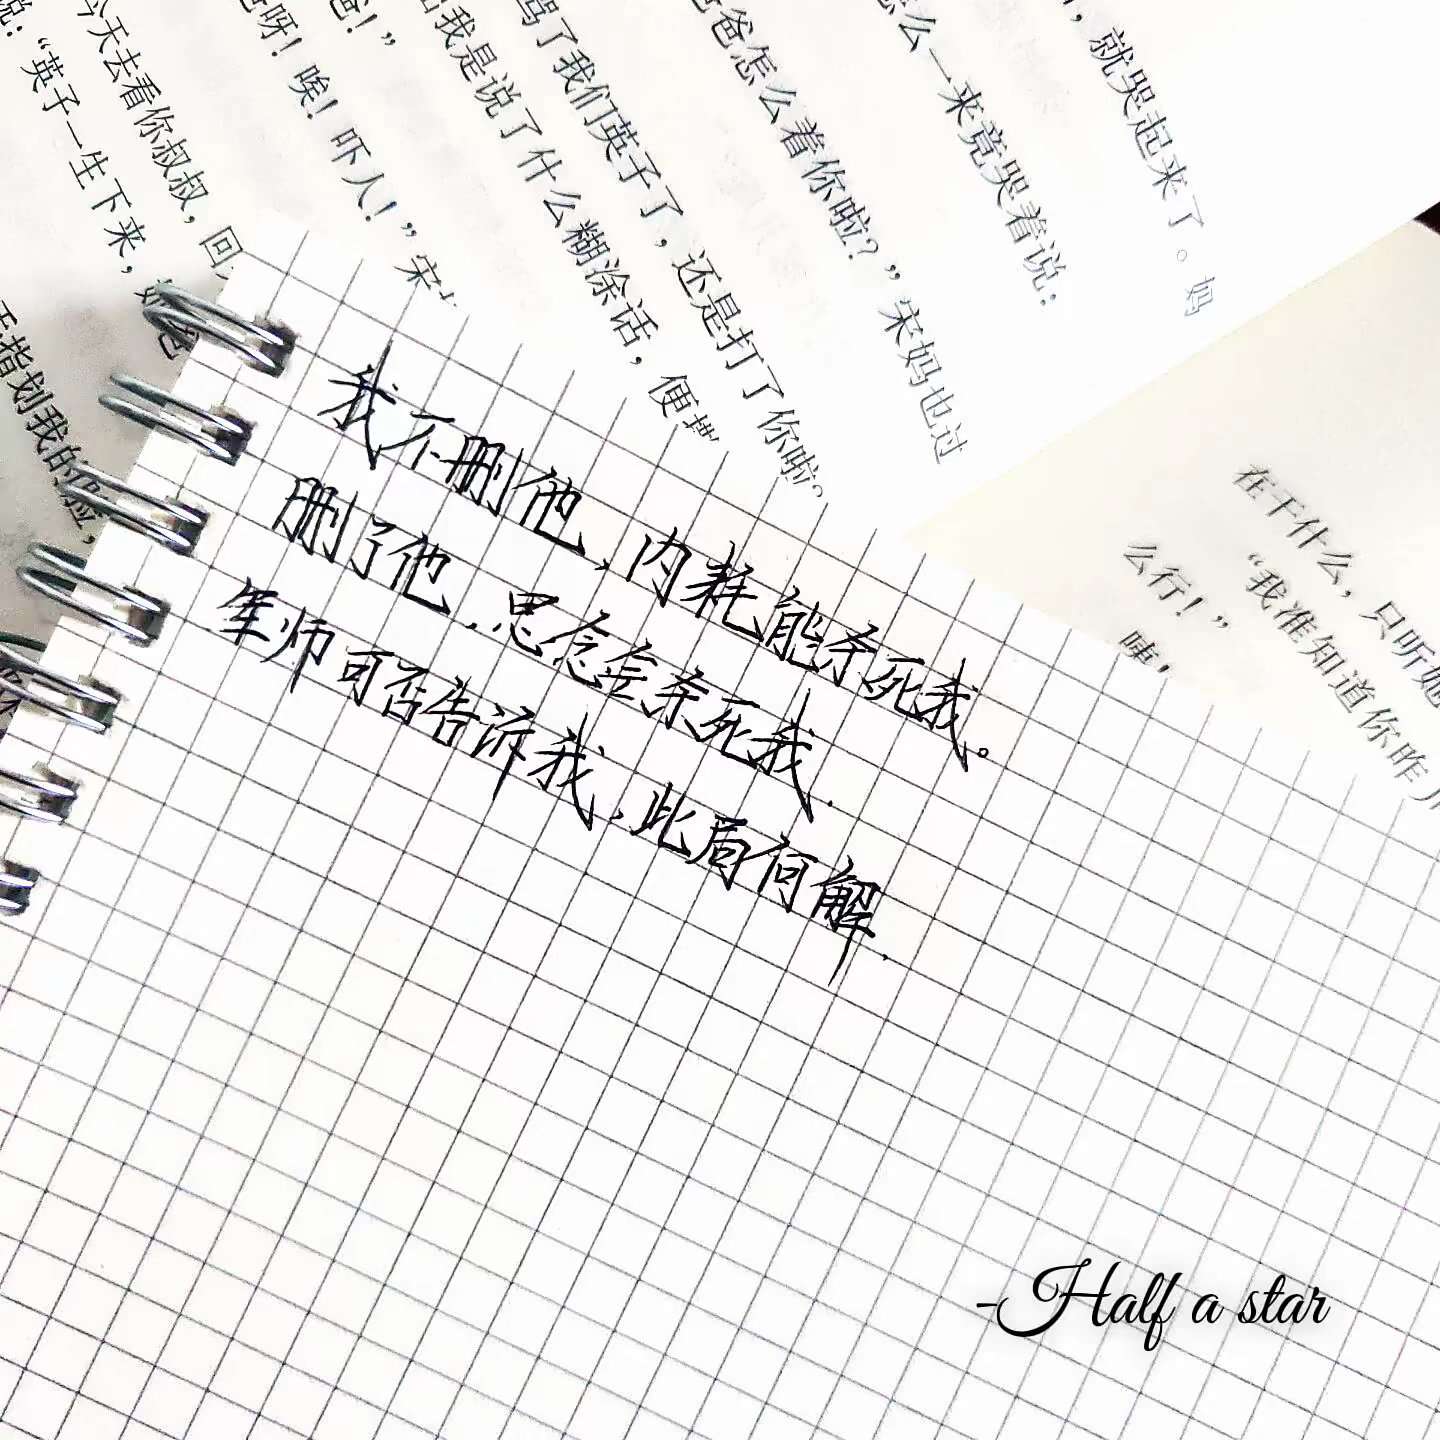 说：“英子一生下来，
今天去看你叔叔，回
爸呀！唉！吓人！”宋
爸！”
我是说了什么糊涂话，便
骂了我们英子了，还是打了你啦。
爸爸怎么着你啦？”宋妈也过
怎么一来竟哭着说：
，就哭起来了。妈
指划我的脸，
在干什么，只听她
“我准知道你昨
么行！”
我不删他，内耗能杀死我。
删了他，思念会杀死我.
军师可否告诉我，此局何解.
-Half a star